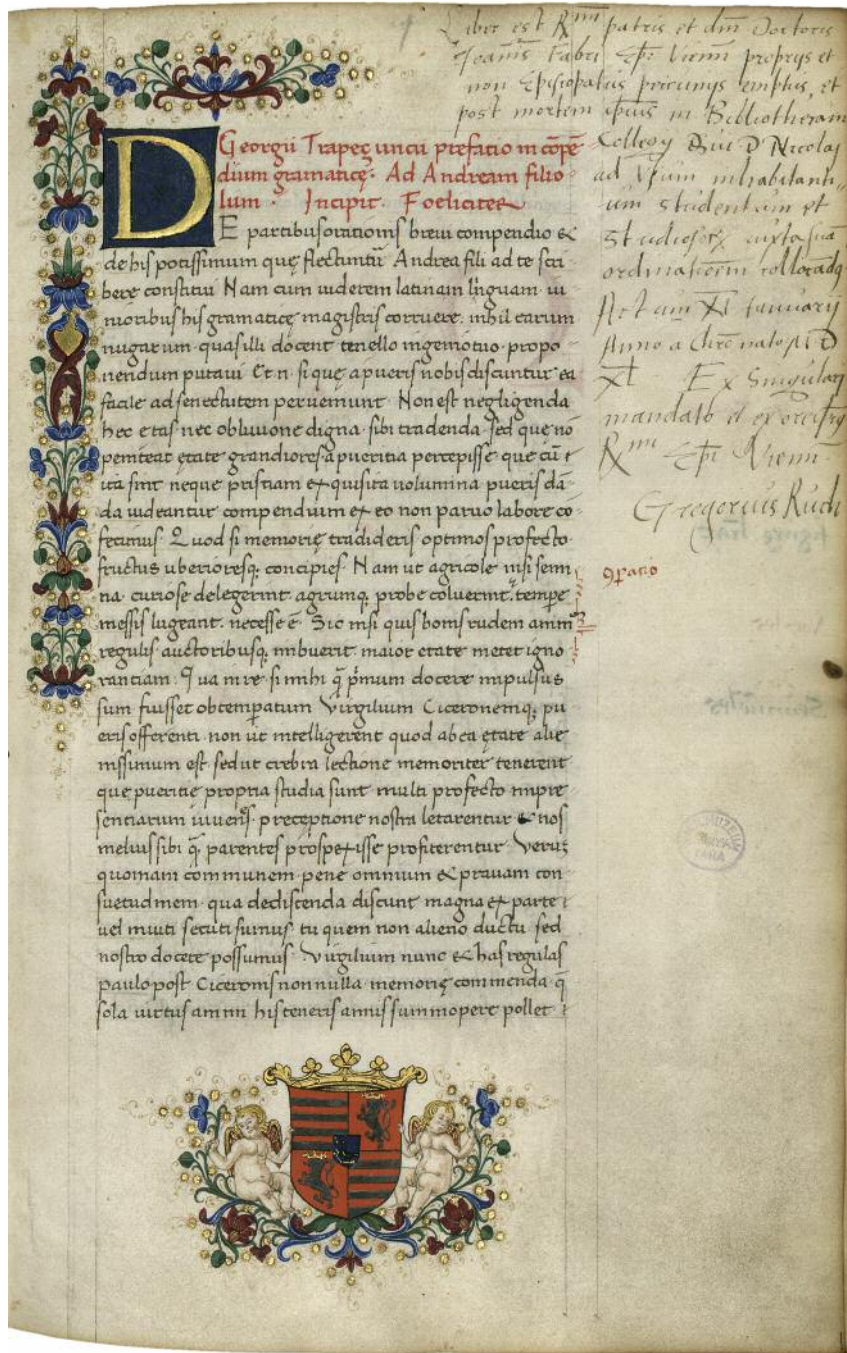 Liber est Rmi patris et dni Doctoris
Joannis Fabri Epi Vienn proprijs et
non Episcopatus pecunijs emptus, et
post mortem ipsius in Bibliothecam
Collegij Divi Nicolaj
ad Usum inhabitanti-
um studentum et
studiosorum iuxta suam
ordinationem collocandus
Actum XI Januarij
Anno a Christo nato MD
XL Ex Singulari
mandato et
Rmi Epi Vienn.
Gregorius Ruch
Georgii Trapezuncii prefatio in cōpē
dium gramaticę. Ad Andream filio
lum. Incipit Foeliciter
DE partibus orationis brevi compendio &
de his potissimum quę flectuntur Andrea fili ad te scri
bere constitui Nam cum uiderem latinam linguam iu
nioribus his gramaticę magistris corruere. nihil earum
nugarum. quas illi docent tenello ingenio tuo. propo
nendum putaui Et.n. si quę a pueris nobis discuntur ea
facile ad senectutem perueniunt. Non est negligenda
hec etas nec obliuione digna. sibi tradenda. sed quę nō
peniteat ętate grandiores a pueritia percepisse que cū
ita sint neque prisciani exquisita uolumina pueris dā
da uideantur compendium ex eo non paruo labore cō
fecimus. Quod si memorię tradideris optimos profecto
fructus uberioresq; concipies. Nam ut agricole nisi semi
na curiose delegerint. agrumq; probe coluerint. tempe
messis lugeant. necesse ē. Sic nisi quis bonis rudem animū
regulis auctoribusq; imbuerit. maior etate metet igno
rantiam. Qua in re si mihi q̄ p̄mum docere impulsus
sum fuisset obtemperatum Virgilium Ciceronemq; pu
eris offerenti. non ut intelligerent quod ab ea ętate alie
nissimum est. sed ut crebra lectione memoriter tenerent
que pueritię propria studia sunt multi profecto inpre
sentiarum iuuenes preceptione nostra letarentur & nos
melius sibi q̄ parentes prospexisse profiterentur. Verum
quoniam communem pene omnium & prauam con
suetudinem. qua dediscenda discunt magna ex parte
uel inuiti secuti sumus. tu quem non alieno ductu. sed
nostro docere possumus. Virgilium nunc & has regulas
paulo post Ciceronis non nulla. memorię commenda. q̄
sola uirtus animi his teneris annis summopere pollet
9patio